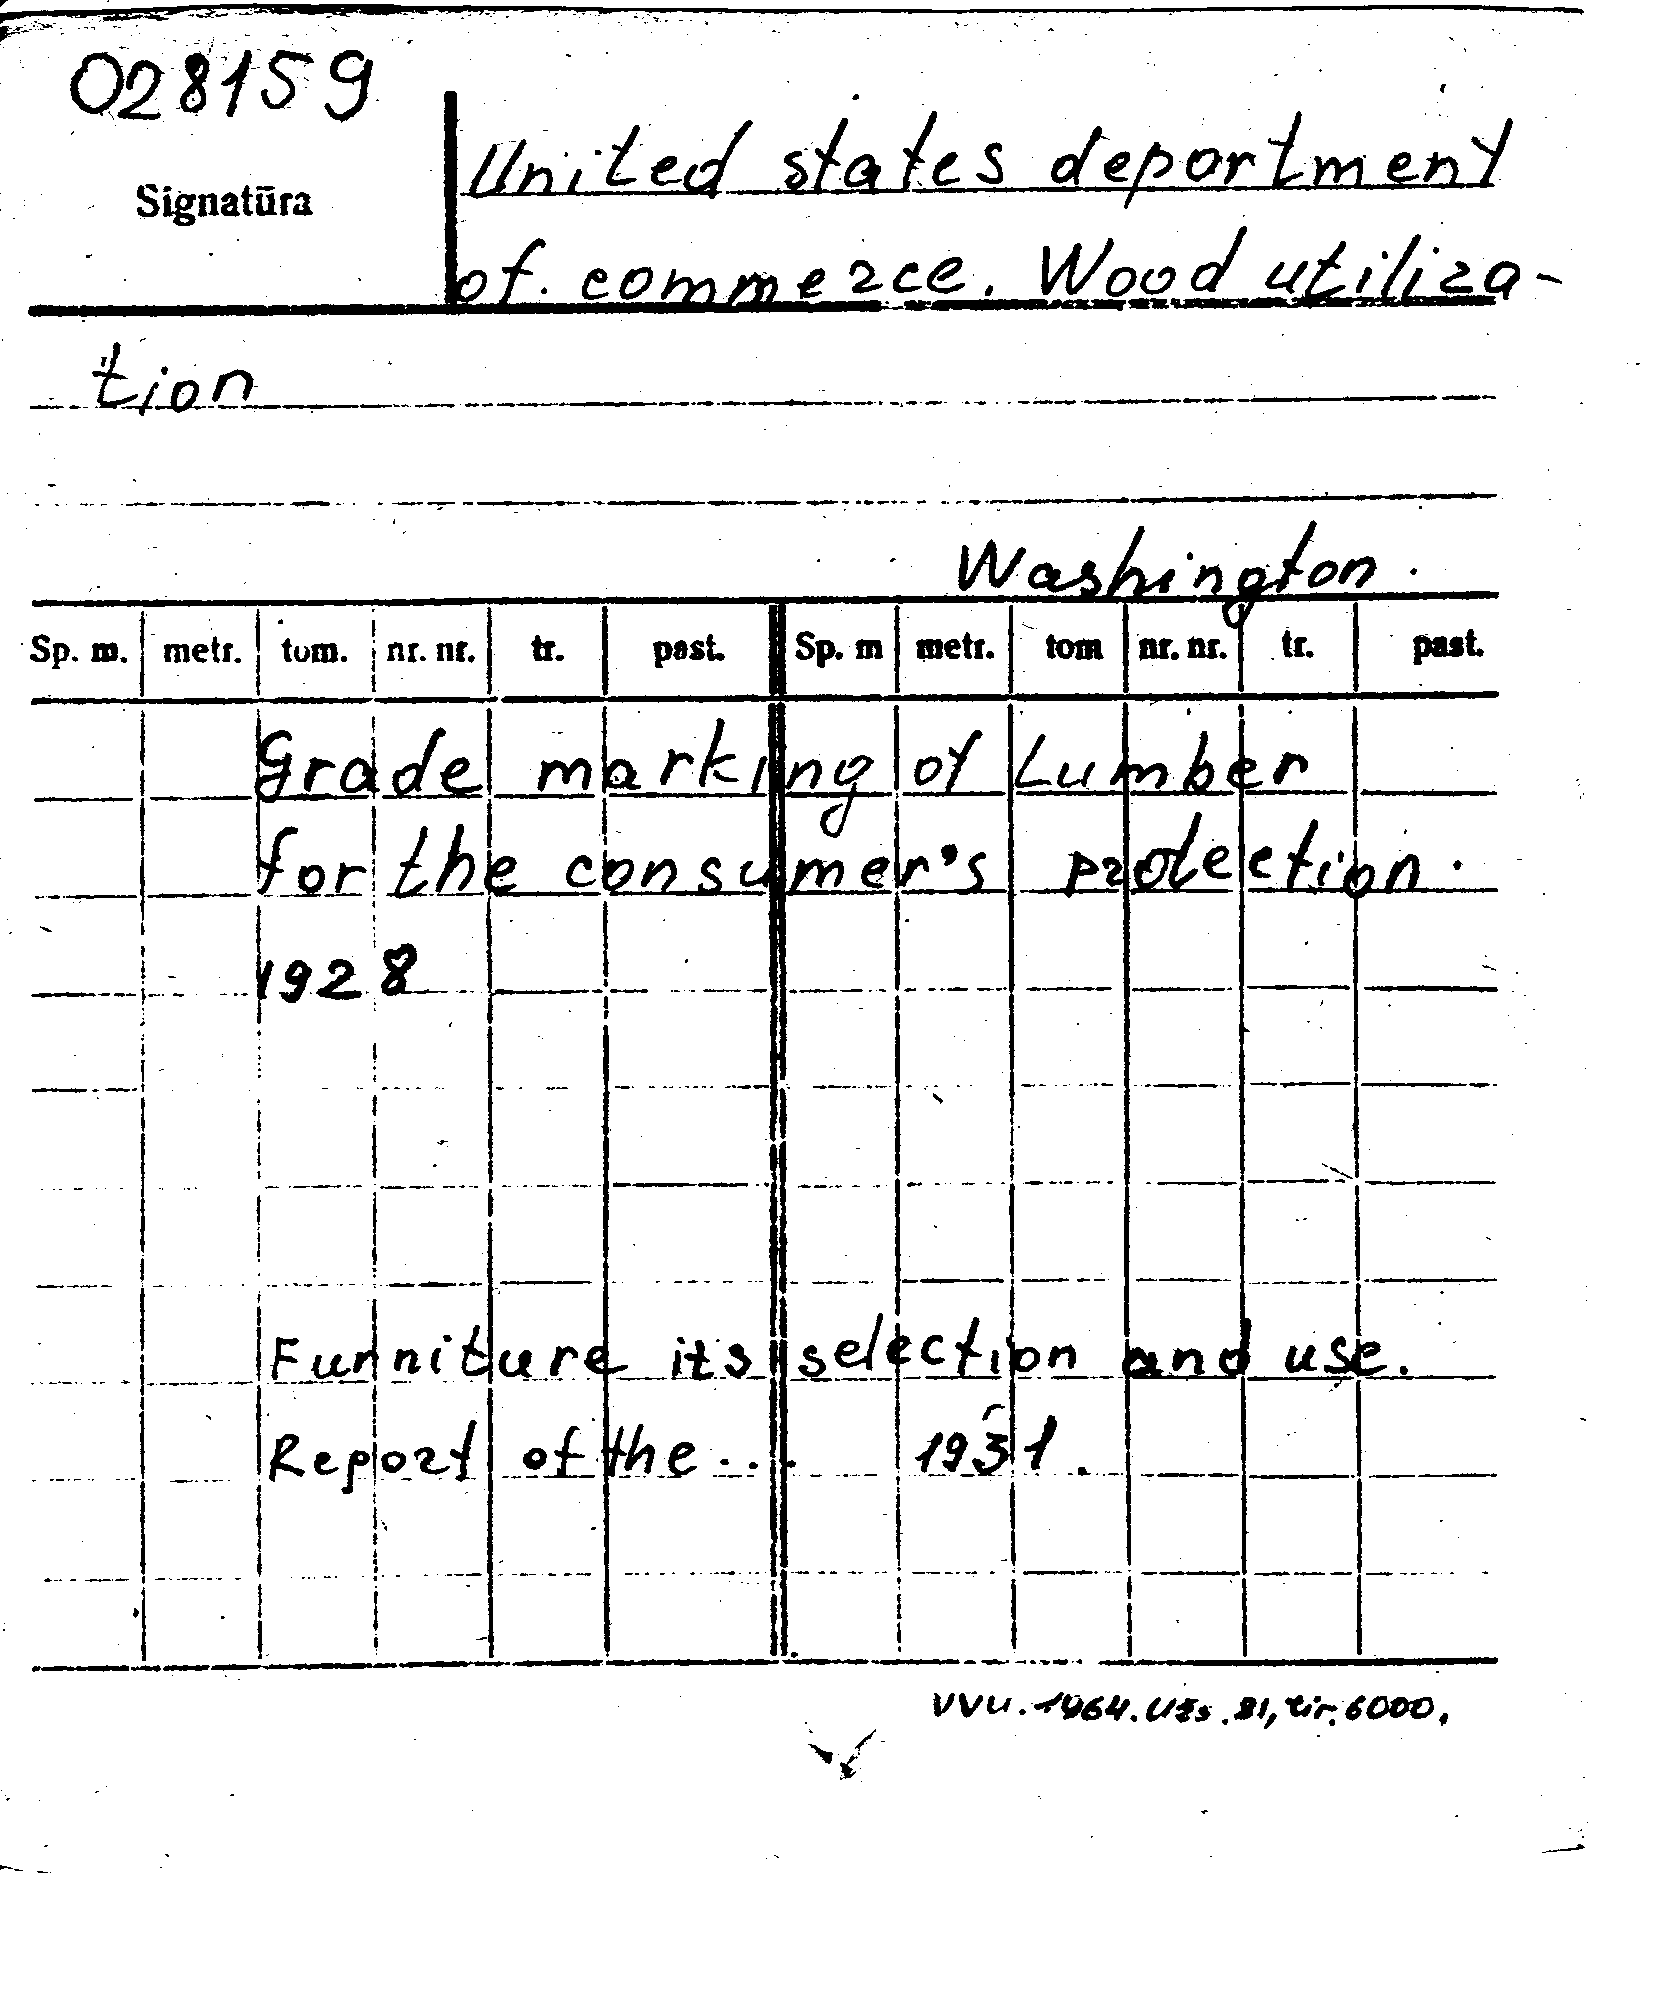 028159
Signatūra
United states department
of. commerce. Wood utiliza-
tion
Washington.
Sp. m. metr. tom. nr. nr. tr. past. Sp. m metr. tom nr. nr. tr. past.
Grade marking of Lumber
for the consumer's protection.
1928
Furniture its selection and use.
Report of the... 1931.
VVU. 1964. Užs. 81, tir. 6000.